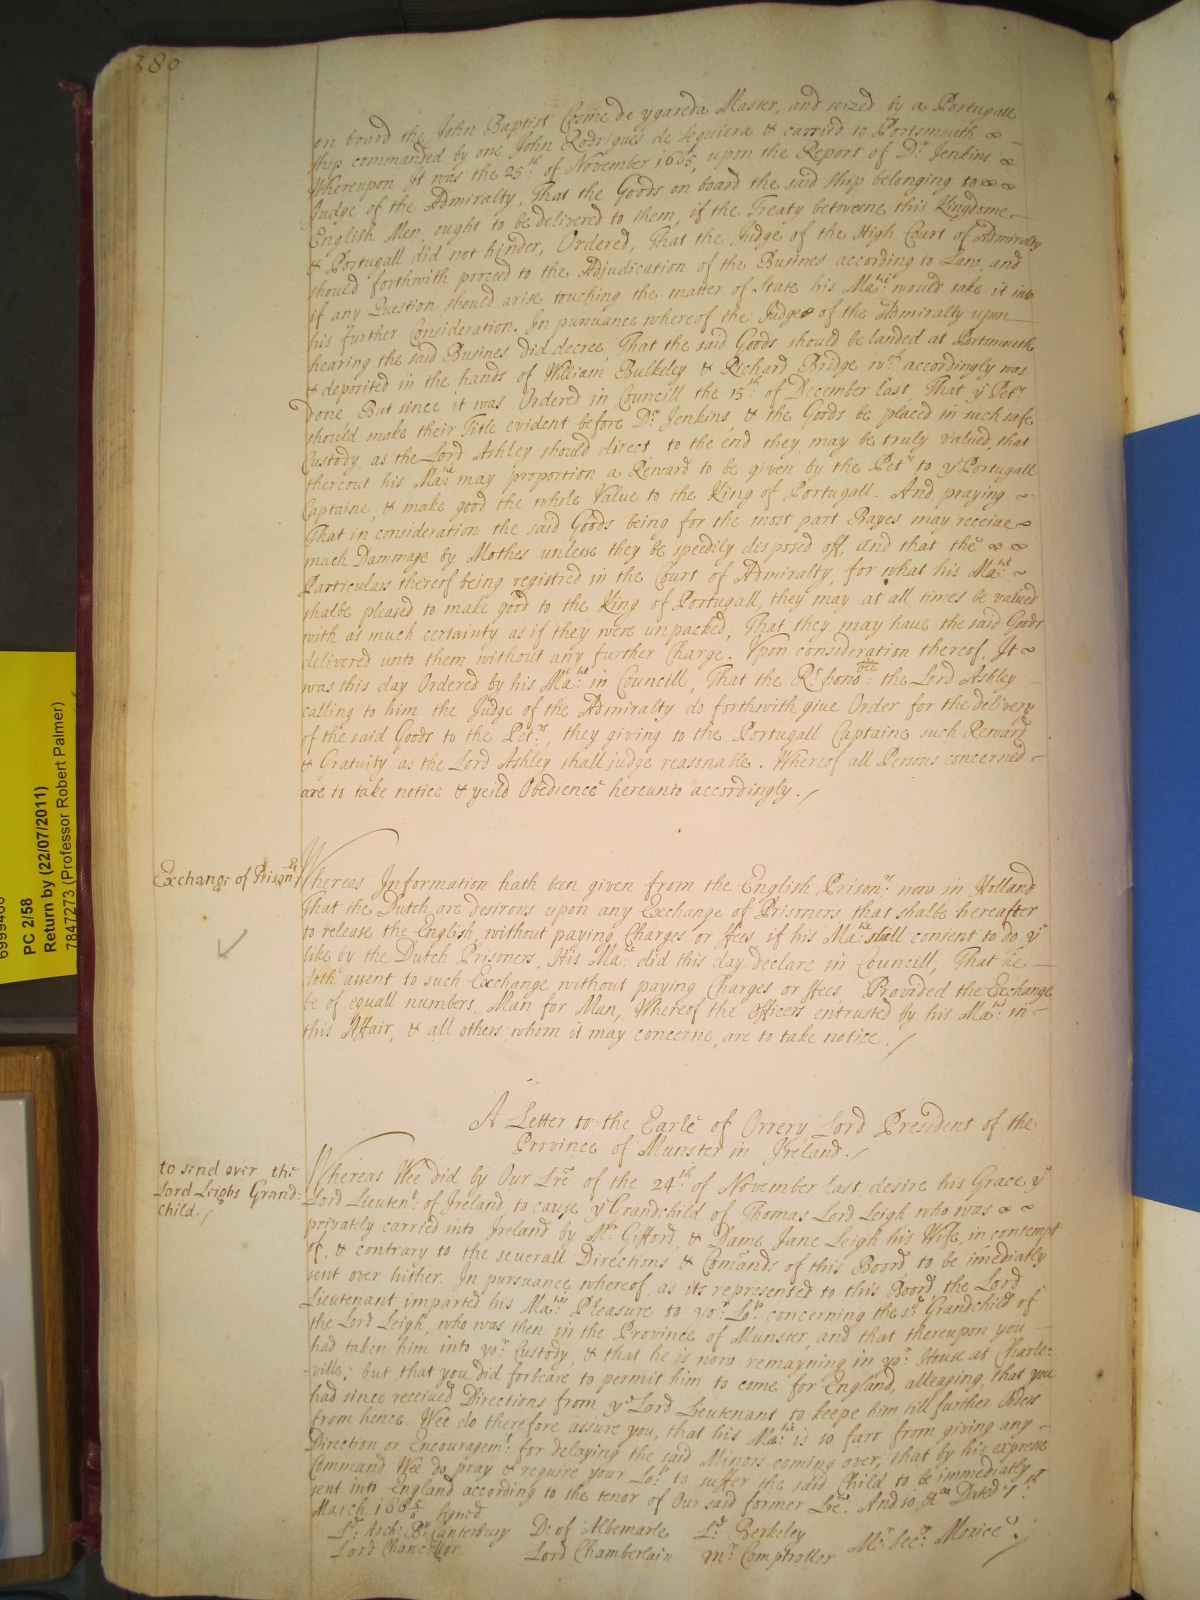 380
on board the John Baptist Cosme de ygareda Master, and seized by a Portugall
ship commanded by one John Rodrigues de Siguiera & carried to Portsmouth,
Whereupon it was the 25th of November 1665, upon the Report of Dr Jenkins
Judge of the Admiralty, That the Goods on board the said ship belonging to
English Men, ought to be delivered to them, if the Treaty betweene this Kingdome
& Portugall did not hinder, Ordered, That the Judge of the High Court of Admiralty
should forthwith proceed to the Adjudication of the Busines according to Law, and
if any Question should arise touching the matter of State his Matie would take it into
his further Consideration. In pursuance whereof the Judge of the Admiralty upon
hearing the said Busines did decree, That the said Goods should be landed at Portsmouth
& deposited in the hands of William Bulkeley & Richard Bridge wch accordingly was
done But since it was Ordered in Councill the 15th of December last, That ye Petrs
should make their Title evident before Dr Jenkins, & the Goods be placed in such safe
Custody, as the Lord Ashley should direct, to the end they may be truly valued, that
thereout his Matie may proportion a Reward to be given by the Petrs to ye Portugall
Captaine, & make good the whole Value to the King of Portugall. And praying
That in consideration the said Goods being for the most part Bayes, may receive
much Dammage by Mothes unless they be speedily disposed off, and that the
Particulars thereof being registred in the Court of Admiralty, for what his Matie
shalbe pleased to make good to the King of Portugall, they may at all times be valued
with as much certainty as if they were unpacked, That they may haue the said Goods
delivered unto them without any further Charge. Upon consideration thereof, It
was this day Ordered by his Matie in Councill, That the Rt honoble the Lord Ashley
calling to him the Judge of the Admiralty do forthwith giue Order for the delivery
of the said Goods to the Petrs, they giving to the Portugall Captaine such Reward
& Gratuity as the Lord Ashley shall judge reasonable. Whereof all Persons concerned
are to take notice & yeild Obedience hereunto accordingly.
Exchange of Prisonrs
Whereas Information hath been given from the English Prisonrs now in Holland
That the Dutch are desirous upon any Exchange of Prisoners, that shalbe hereafter
to release the English, without paying Charges or ffees if his Matie shall consent to do ye
like by the Dutch Prisoners, His Matie did this day declare in Councill, That he
doth assent to such Exchange without paying Charges or ffees, Provided the Exchange
be of equall numbers, Man for Man, Whereof the Officers entrusted by his Matie in
this Affair, & all others whom it may concerne, are to take notice.
A Letter to the Earle of Orrery Lord President of the
Province of Munster in Ireland.
to send over the
Lord Leighs Grand-
child.
Whereas Wee did by Our Lre of the 24th of November last, desire his Grace ye
Lord Lieutent of Ireland, to cause ye Grandchild of Thomas Lord Leigh who was
privately carried into Ireland by Mr Gifford, & Dame Jane Leigh his Wife, in contempt
of, & contrary to the severall Directions & Comands of this Boord, to be imediatly
sent over hither. In pursuance whereof, as its represented to this Boord, the Lord
Lieutenant imparted his Maties Pleasure to yor Lop concerning the sd Grandchild of
the Lord Leigh, who was then in the Province of Munster, and that thereupon you
had taken him into yor Custody, & that he is now remayning in yor House at Charle-
-ville; but that you did forbeare to permit him to come for England, alleaging, that you
had since received Directions from ye Lord Lieutenant to keepe him till further Orders
from hence. Wee do therefore assure you, that his Matie is so farr from giving any
Direction or Encouragemt for delaying the said Minors coming over, that by his express
Command Wee do pray & require your Lop to suffer the said Child to be immediatly
sent into England according to the tenor of Our said former Lre. And so, &ca Dated 7th
March 1665/6 Signed
Ld Arch: Bp Canterbury D: of Albemarle Ld Berkeley Mr Secry Morice.
Lord Chancellor. Lord Chamberlain Mr Comptroller
PC 2/58
Return by (22/07/2011)
7847273 (Professor Robert Palmer)